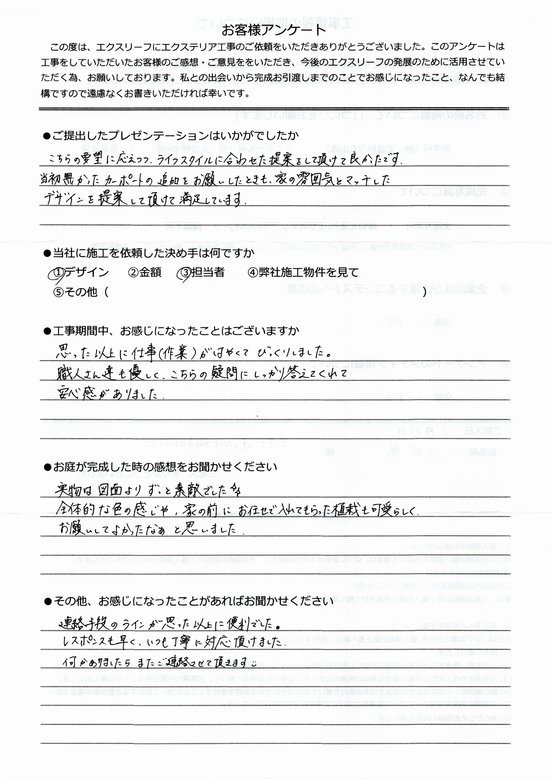 お客様アンケート
この度は、エクスリーフにエクステリア工事のご依頼をいただきありがとうございました。このアンケートは
工事をしていただいたお客様のご感想・ご意見ををいただき、今後のエクスリーフの発展のために活用させてい
ただく為、お願いしております。私との出会いから完成お引渡しまでのことでお感じになったこと、なんでも結
構ですので遠慮なくお書きいただければ幸いです。
●ご提出したプレゼンテーションはいかがでしたか
こちらの要望に応えつつ、ライフスタイルに合わせた提案をして頂けて良かったです.
当初無かったカーポートの追加をお願いしたときも、家の雰囲気とマッチした
デザインを提案して頂けて満足しています.
●当社に施工を依頼した決め手は何ですか
①デザイン ②金額 ③担当者 ④弊社施工物件を見て
⑤その他（ ）
●工事期間中、お感じになったことはございますか
思った以上に仕事(作業)がはやくて びっくりしました。
職人さん達も優しく、こちらの疑問にしっかり答えてくれて
安心感がありました.
●お庭が完成した時の感想をお聞かせください
実物は図面よりずっと素敵でした
全体的な色の感じや、家の前にお任せで入れてもらった植栽も可愛らしく
お願いしてよかったなぁと思いました.
●その他、お感じになったことがあればお聞かせください
連絡手段のラインが思った以上に便利でした。
レスポンスも早く、いつも丁寧に対応頂けました.
何かありましたら またご連絡させて頂きます